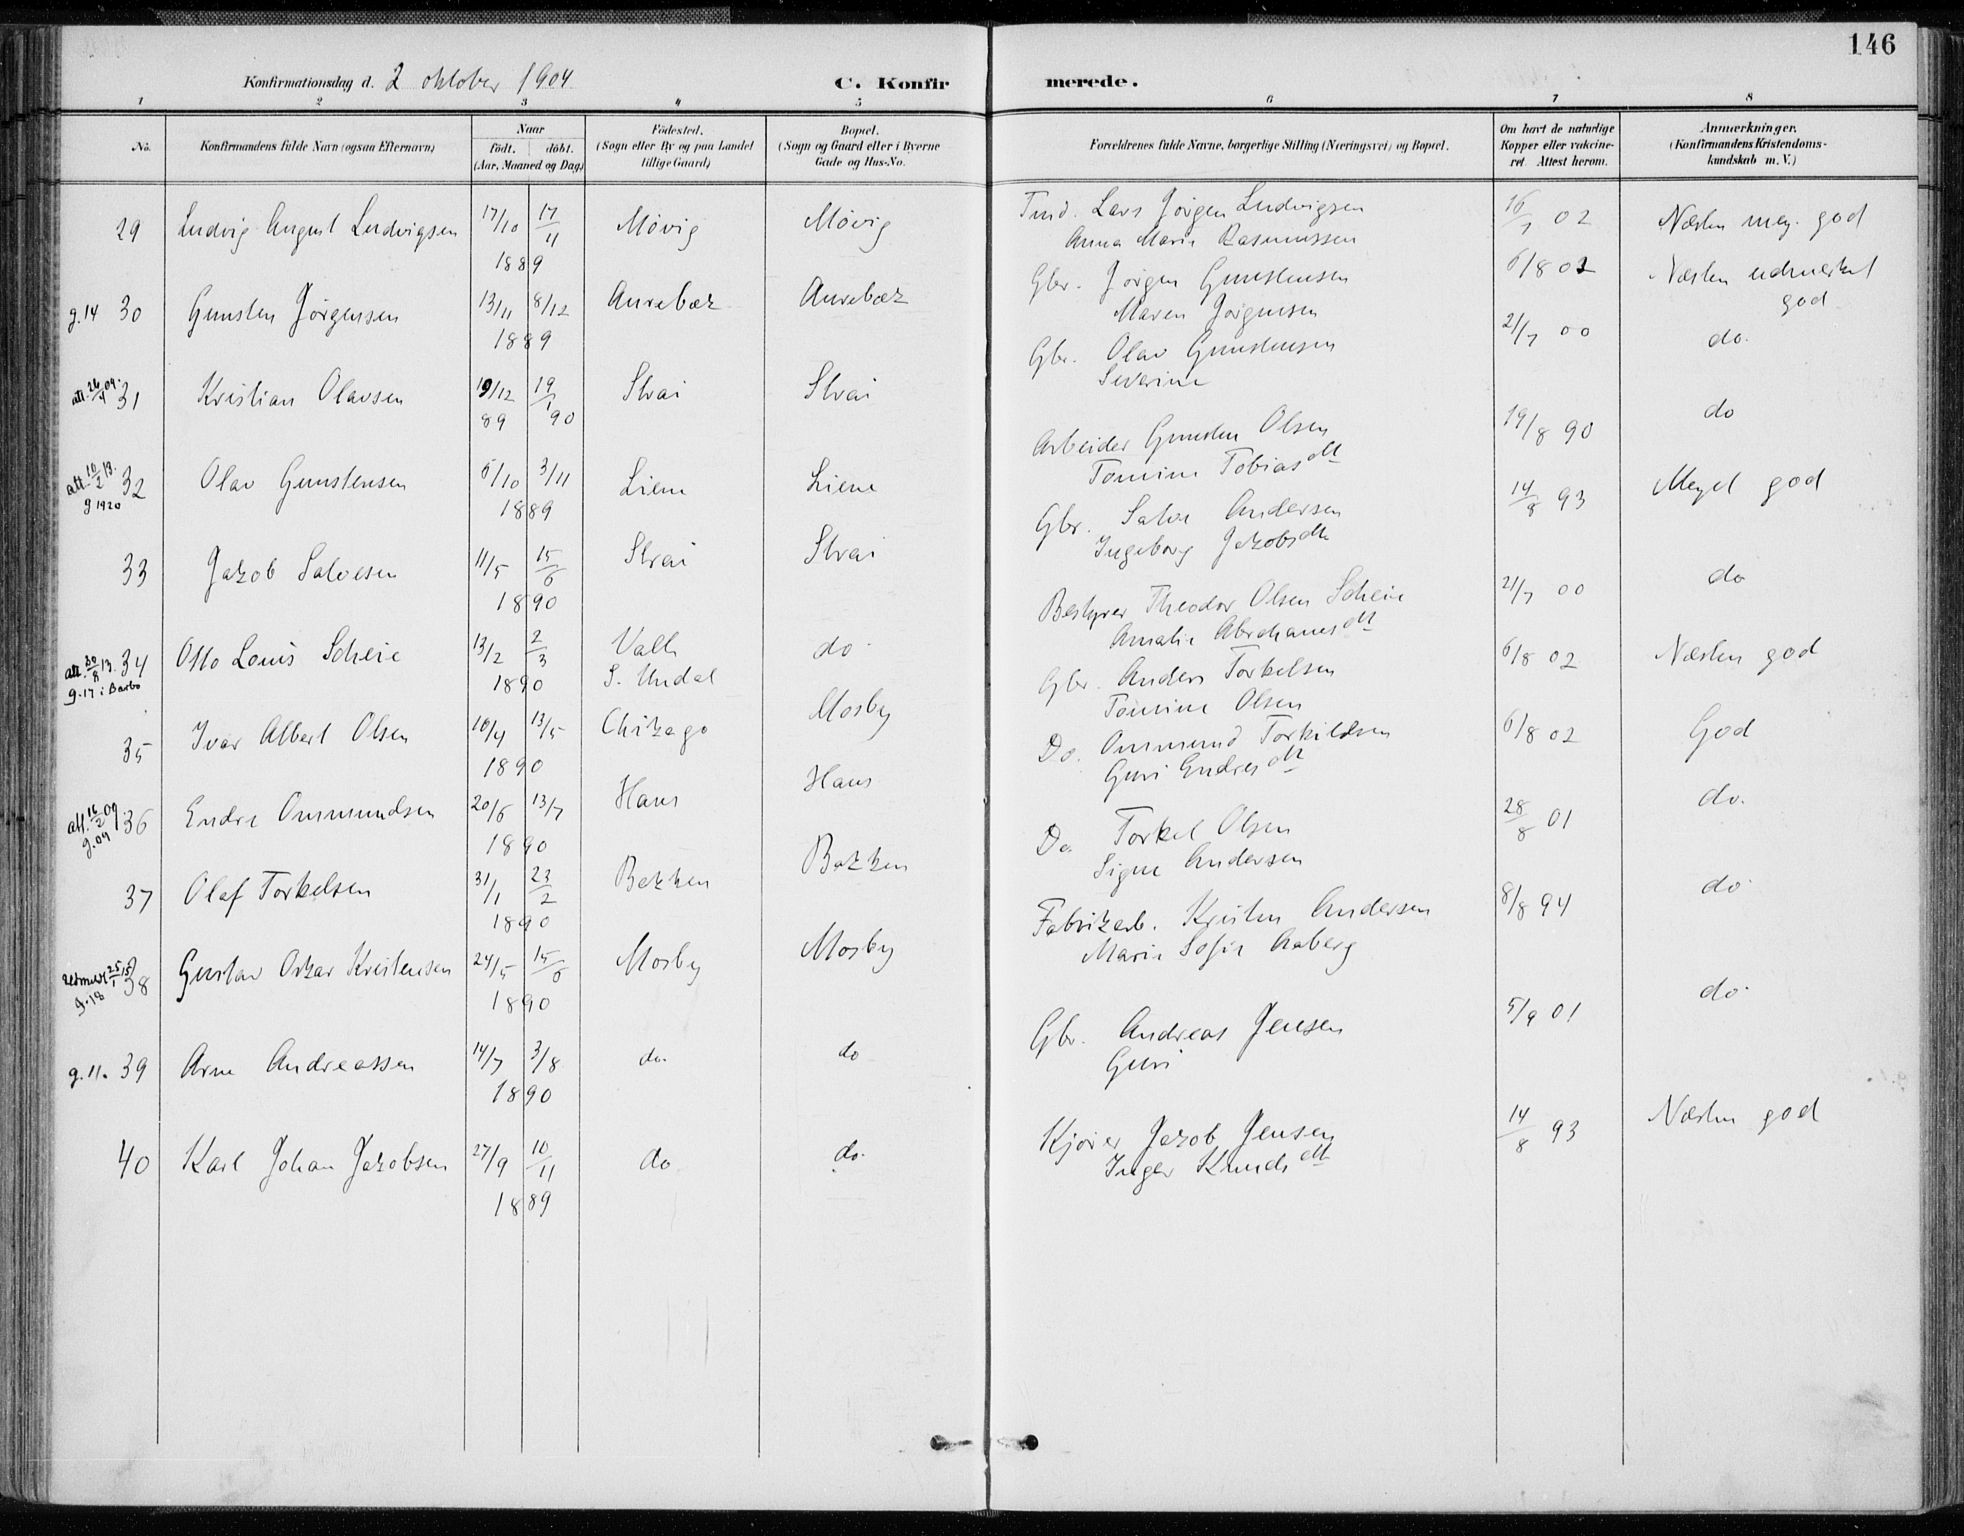 146
Konfirmationsdag d. 2 oktober 1904
C. Konfirmerede.
1 2 3 4 5 6 7 8
No.
Konfirmandens fulde Navn (ogsaa Efternavn)
Naar
født. døbt.
(Aar, Maaned og Dag)
Fødested.
(Sogn eller By og paa Landet
tillige Gaard)
Bopæl.
(Sogn og Gaard eller i Byerne
Gade og Hus-No.
Forældrenes fulde Navne, borgerlige Stilling (Næringsvei) og Bopæl.
Om havt de naturlige
Kopper eller vakcine-
ret Attest herom.
Anmærkninger.
(Konfirmandens Kristendoms-
kundskab m. V.)
29 Ludvig August Ludvigsen 17/10 17/11 1889 Møvig Møvig
Lars Jørgen Ludvigsen
Anna Marie Rasmussen
16/7 02 Næsten meg. god
g. 14 30 Gunsten Jørgensen 13/11 8/12 1889 Aurebæk Aurebæk
Gbr. Jørgen Gunstensen
Maren Jørgensen
6/8 02 Næsten udmerket
god
att. 26/4 09. 31 Kristian Olavsen 19/12 89 19/1 90 Strai Strai
Gbr. Olav Gunstensen
Severine
21/7 00 do.
att. 10/2 13. g 1920 32 Olav Gunstensen 6/10 3/11 1889 Liene Liene
Arbeider Gunsten Olsen
Tomine Tobiasdtt
19/8 90 do
33 Jakob Salvesen 11/5 15/6 1890 Strai Strai
Gbr. Salve Andersen
Ingeborg Jakobsdtt
14/8 93 Meget god
att. 30/8 13. g. 17 i Barbo 34 Otto Louis Scheie 13/2 2/3 1890 Valle
S. Undal do.
Bestyrer Theodor Olsen Scheie
Amalie Abrahamsdtt
21/7 00 do
35 Ivar Albert Olsen 10/4 13/5 1890 Chikago Mosby
Gbr. Anders Torkelsen
Tomine Olsen
6/8 02 Næsten god
att. 16/2 09. g. 09 36 Endre Ommundsen 20/6 13/7 1890 Haus Haus
Do. Ommund Torkildsen
Guri Endresdtt
6/8 02 God
37 Olaf Torkelsen 31/1 23/2 1890 Bekken Bekken
Do. Torkel Olsen
Signe Andersen
28/8 01 do.
25/1 15 g. 18 38 Gustav Oskar Kristensen 24/5 15/6 1890 Mosby Mosby
Fabrikarb. Kristen Andersen
Marie Sofie Aaberg
8/8 94 do.
g. 11. 39 Arne Andreassen 14/7 3/8 1890 do. do
Gbr. Andreas Jensen
Guri
5/9 01 do.
40 Karl Johan Jakobsen 27/9 10/11 1889 do do.
Kjører Jakob Jensen
Inger Knudsdtt
14/8 93 Næsten god